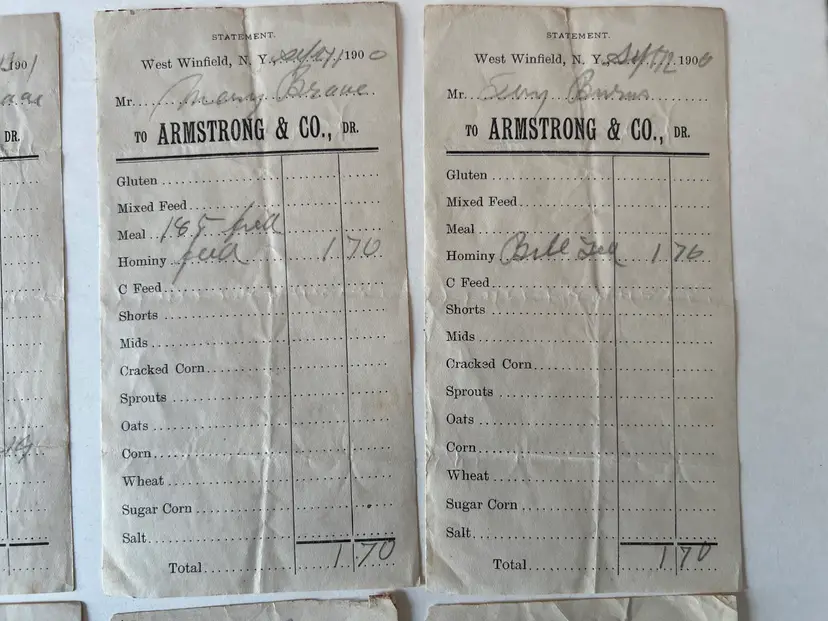 1901
DR.
STATEMENT.
West Winfield, N. Y., 1900
Mr. Brave
TO ARMSTRONG & CO., DR.
Gluten
Mixed Feed
Meal 185 feed
Hominy feed 1 70
C Feed
Shorts
Mids
Cracked Corn
Sprouts
Oats
Corn
Wheat
Sugar Corn
Salt
Total 1 70
STATEMENT.
West Winfield, N. Y., Sept 1900
Mr. Burns
TO ARMSTRONG & CO., DR.
Gluten
Mixed Feed
Meal
Hominy 1 70
C Feed
Shorts
Mids
Cracked Corn
Sprouts
Oats
Corn
Wheat
Sugar Corn
Salt
Total 1 70